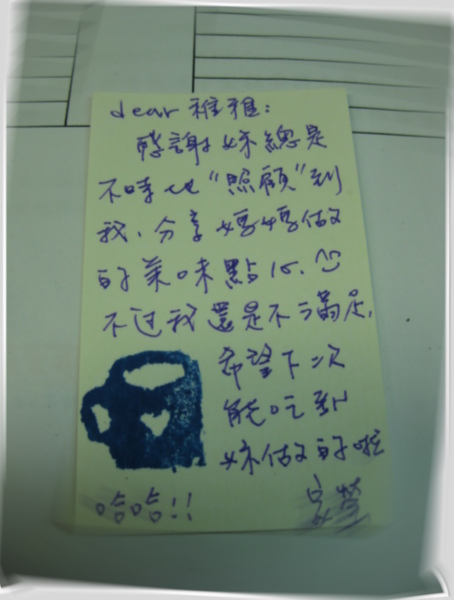 dear 雅雅:
感謝妳總是
不時地“照顧”到
我、分享媽媽做
的美味點心.
不过我還是不滿足,
希望下次
能吃到
妳做的啦
哈哈!!